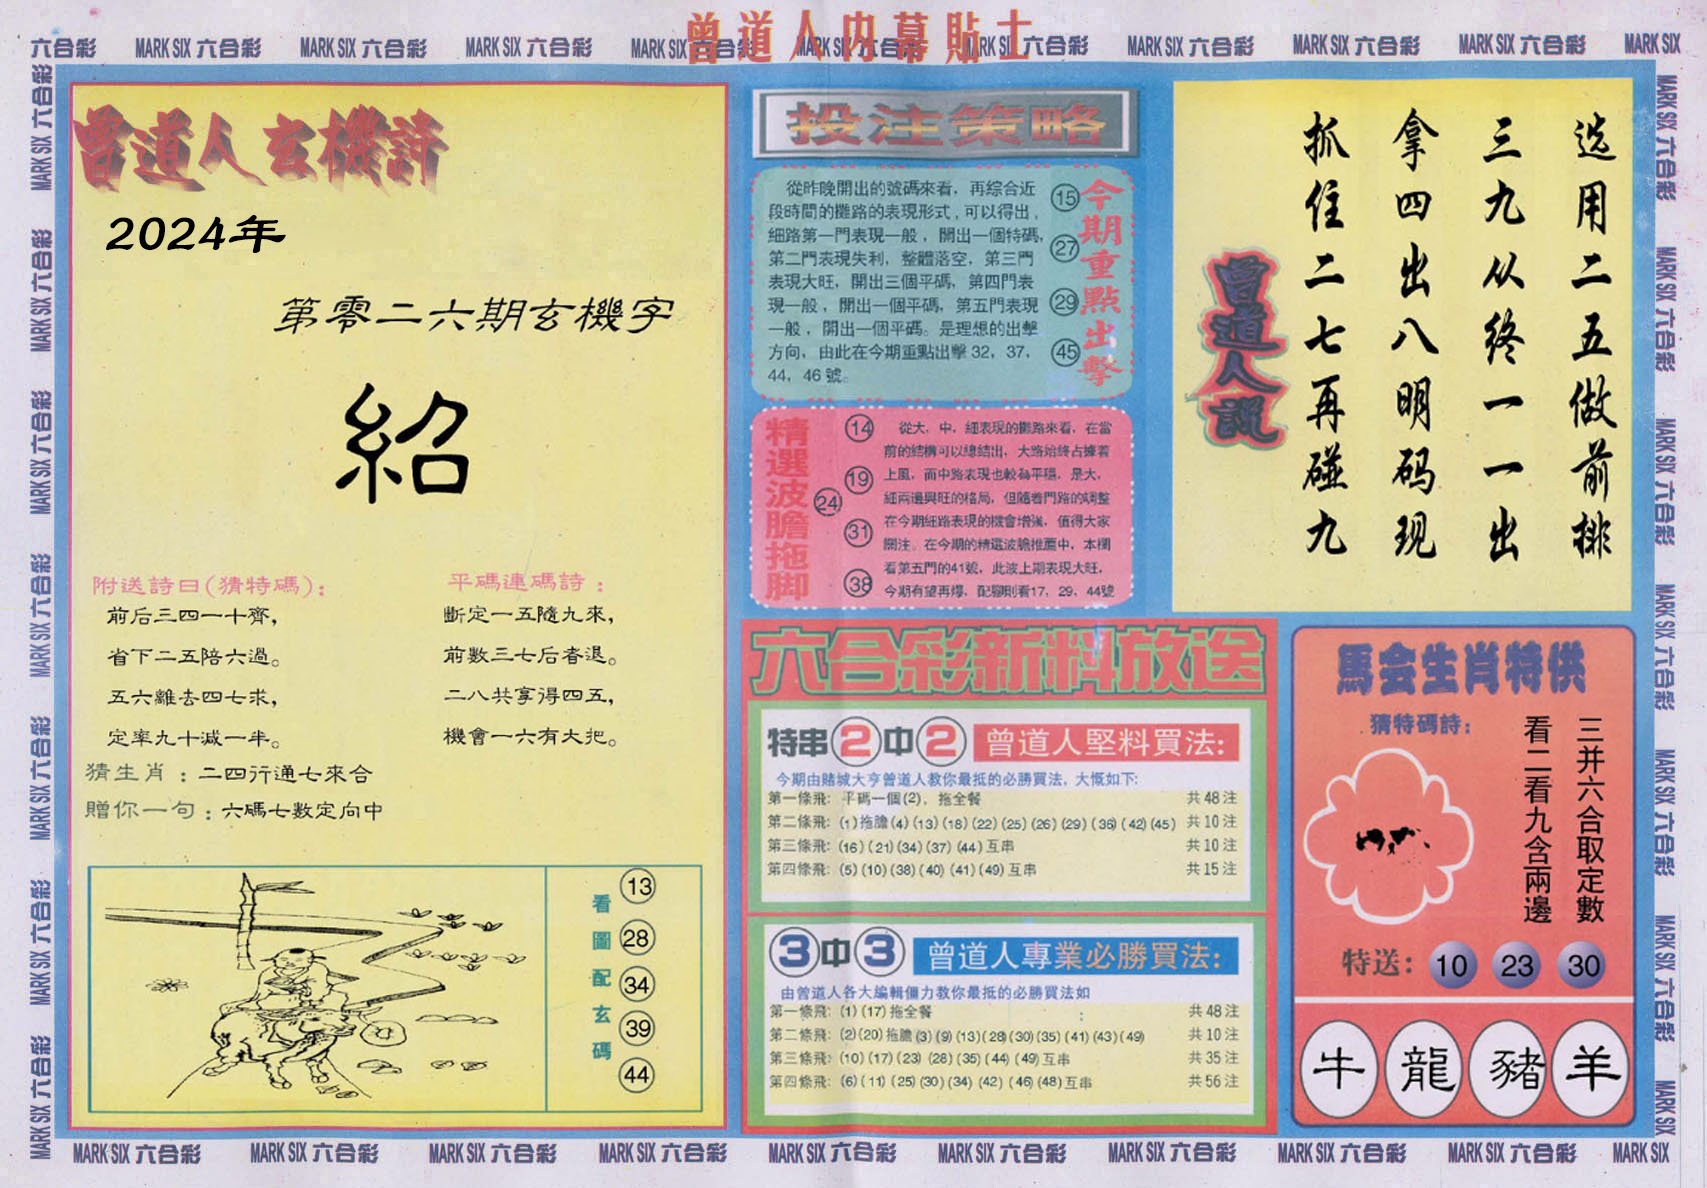 曾道人内幕貼士
六合彩 MARK SIX 六合彩 MARK SIX 六合彩 MARK SIX 六合彩 MARK SIX 六合彩 MARK SIX 六合彩 MARK SIX 六合彩 MARK SIX 六合彩 MARK SIX 六合彩 MARK SIX 六合彩 MARK SIX
曾道人玄機詩
2024年
第零二六期玄機字
紹
附送詩曰(猜特碼):
前后三四一十齊,
省下二五陪六過。
五六離去四七求,
定率九十減一半。
平碼連碼詩:
斷定一五隨九來,
前數三七后者退。
二八共享得四五,
機會一六有大把。
猜生肖:二四行通七來合
贈你一句:六碼七數定向中
看圖配玄碼
13
28
34
39
44
投注策略
從昨晚開出的號碼來看,再綜合近
段時間的攤路的表現形式,可以得出,
細路第一門表現一般,開出一個特碼,
第二門表現失利,整體落空,第三門
表現大旺,開出三個平碼,第四門表
現一般,開出一個平碼,第五門表現
一般,開出一個平碼。是理想的出擊
方向,由此在今期重點出擊32,37,
44,46號。
15
27
29
45
今期重點出擊
精選波膽拖脚
14
19
24
31
38
從大,中,細表現的攤路來看,在當
前的結構可以總結出,大路始終占據着
上風,而中路表現也較為平穩,是大,
細兩邊興旺的格局,但隨着門路的調整
在今期細路表現的機會增強,值得大家
關注。在今期的精選波膽推薦中,本欄
看第五門的41號,此波上期表現大旺,
今期有望再爆,配腳則看17,29,44號
六合彩新料放送
特串2中2 曾道人堅料買法:
今期由賭城大亨曾道人教你最抵的必勝買法,大慨如下:
第一條飛:平碼一個(2),拖全餐 共48注
第二條飛:(1)拖膽(4)(13)(18)(22)(25)(26)(29)(36)(42)(45) 共10注
第三條飛:(16)(21)(34)(37)(44)互串 共10注
第四條飛:(5)(10)(38)(40)(41)(49)互串 共15注
3中3 曾道人專業必勝買法:
由曾道人各大編輯僵力教你最抵的必勝買法如
第一條飛:(1)(17)拖全餐 : 共48注
第二條飛:(2)(20)拖膽(3)(9)(13)(28)(30)(35)(41)(43)(49) 共10注
第三條飛:(10)(17)(23)(28)(35)(44)(49)互串 共35注
第四條飛:(6)(11)(25)(30)(34)(42)(46)(48)互串 共56注
选用二五做前排
三九从终一一出
拿四出八明码现
抓住二七再碰九
曾道人説
馬会生肖特供
猜特碼詩:
三并六合取定數
看二看九含兩邊
特送: 10 23 30
牛 龍 豬 羊
MARK SIX 六合彩 MARK SIX 六合彩 MARK SIX 六合彩 MARK SIX 六合彩 MARK SIX 六合彩 MARK SIX 六合彩 MARK SIX 六合彩 MARK SIX 六合彩 MARK SIX 六合彩 MARK SIX